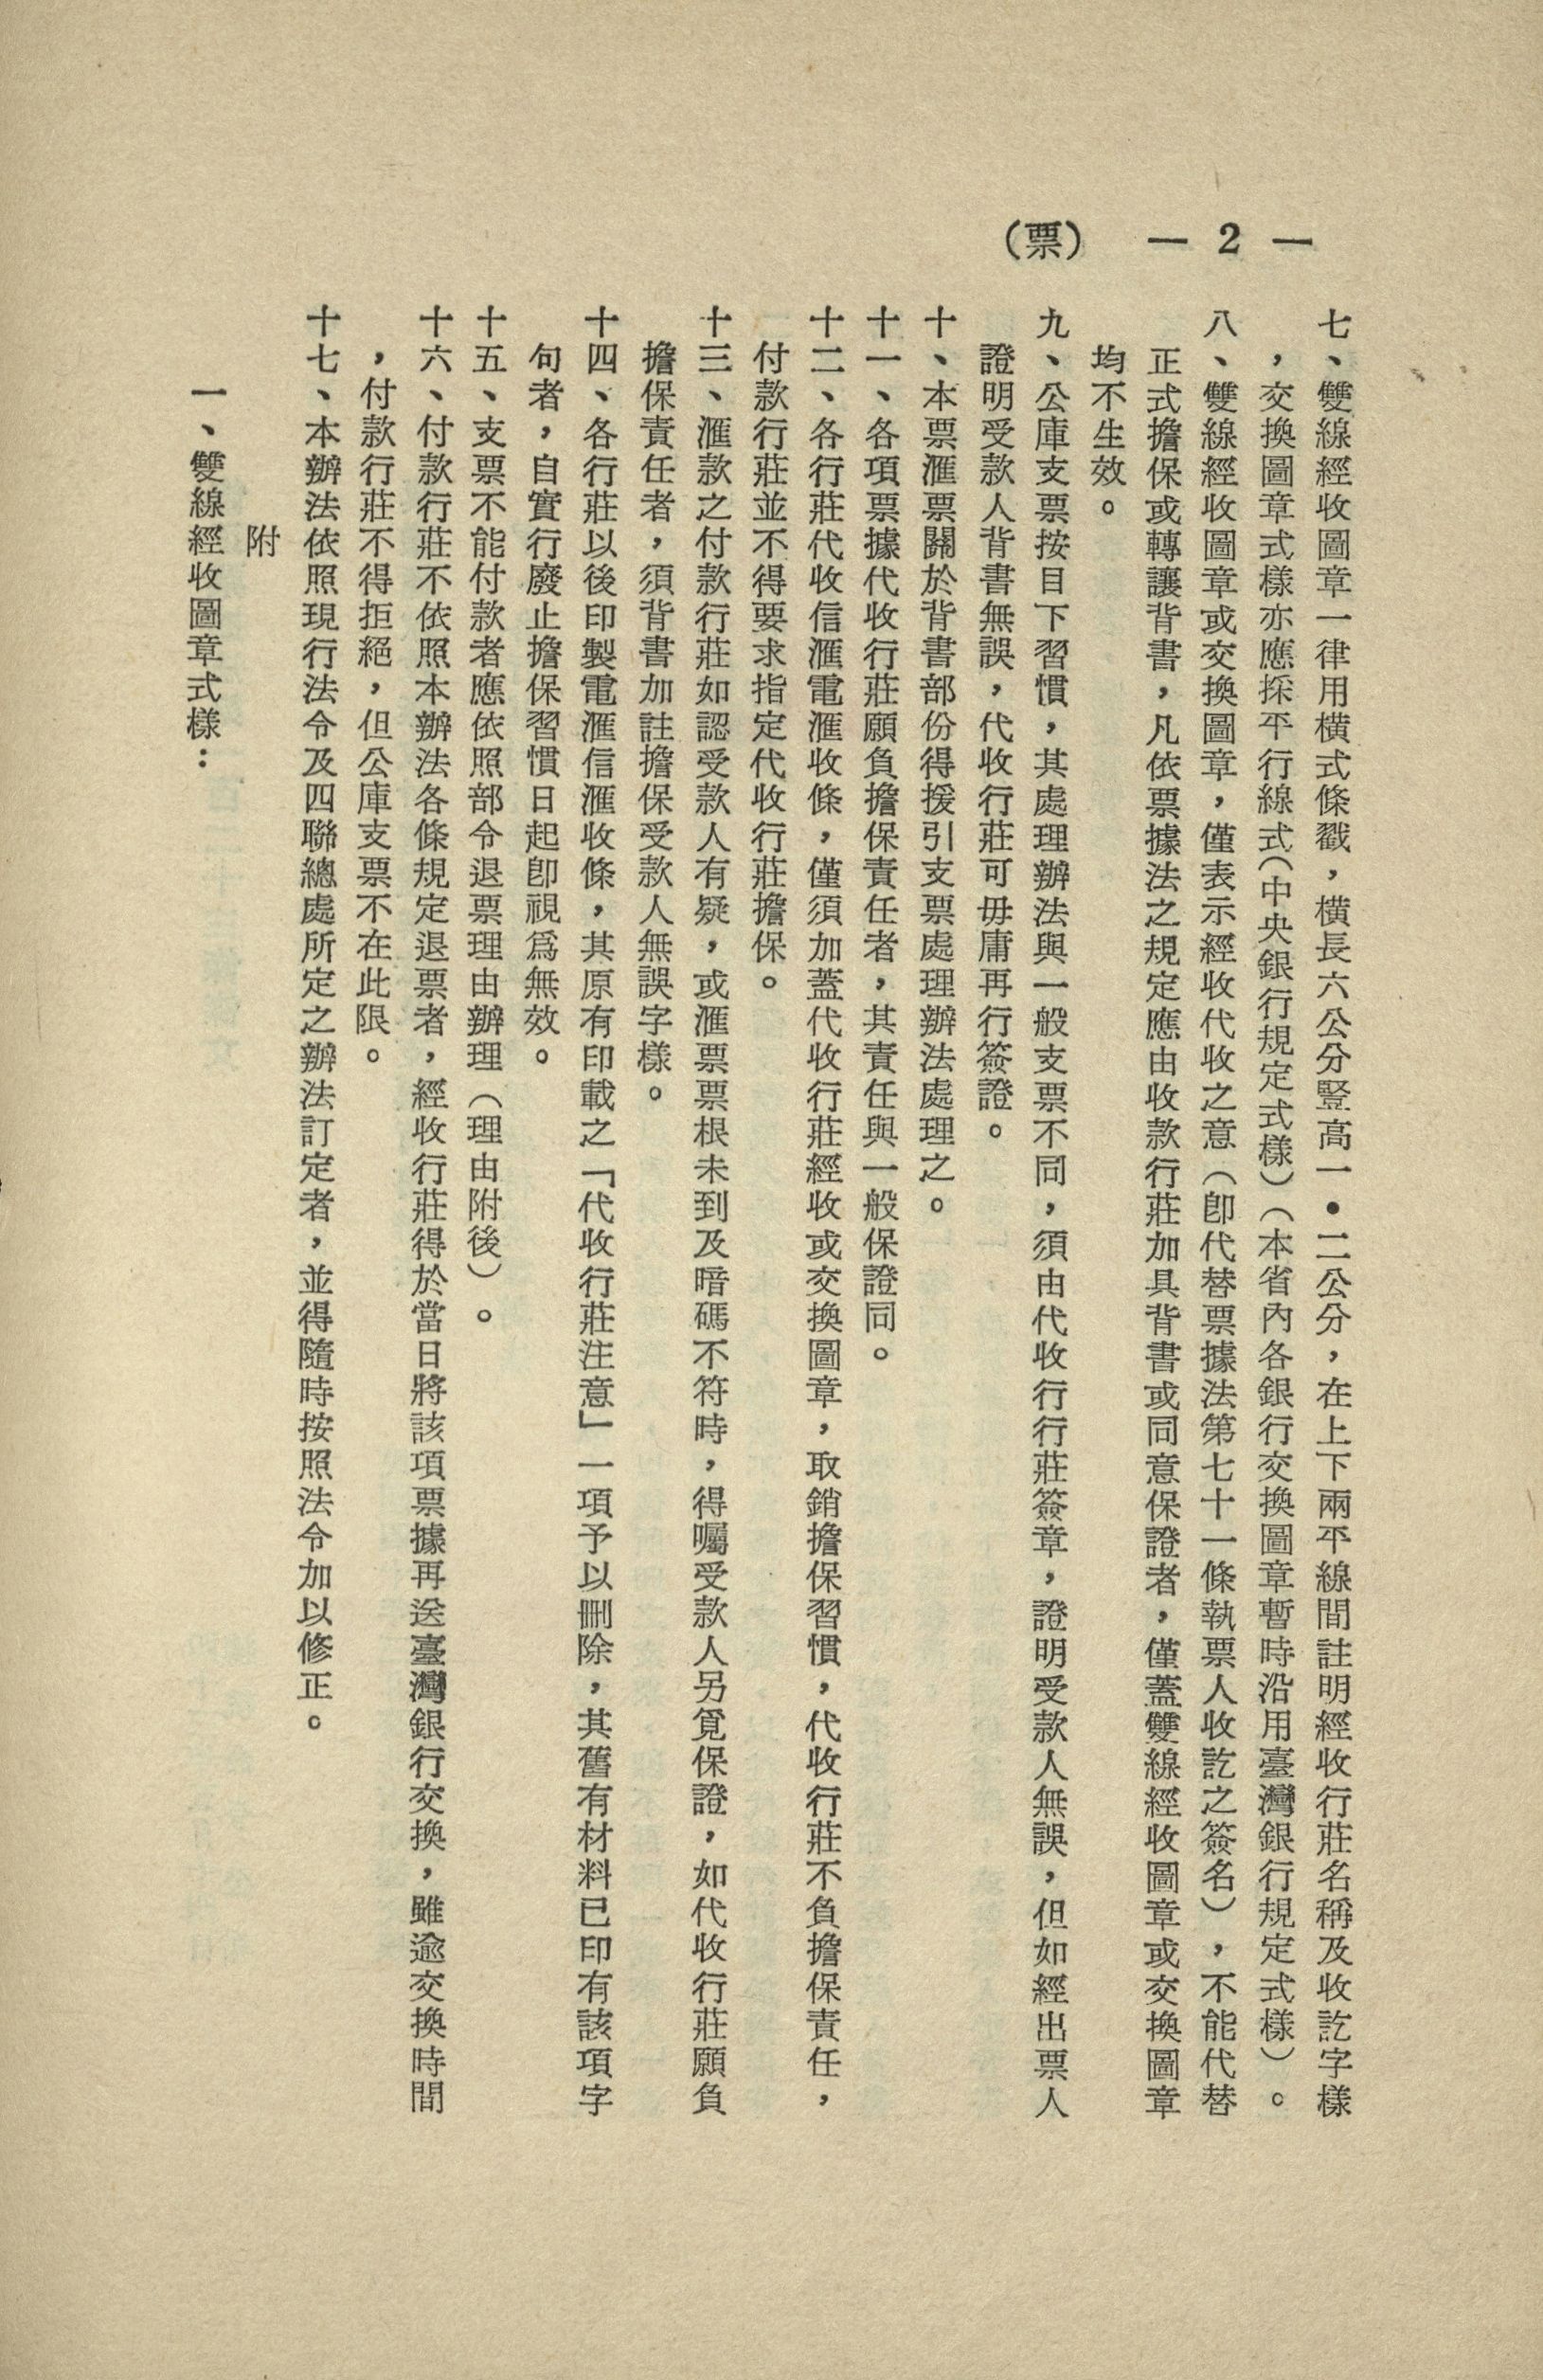 — 2 —
（票）
七、雙線經收圖章一律用橫式條戳，橫長六公分豎高一•二公分，在上下兩平線間註明經收行莊名稱及收訖字樣
，交換圖章式樣亦應採平行線式（中央銀行規定式樣）（本省內各銀行交換圖章暫時沿用臺灣銀行規定式樣）。
八、雙線經收圖章或交換圖章，僅表示經收代收之意（卽代替票據法第七十一條執票人收訖之簽名），不能代替
正式擔保或轉讓背書，凡依票據法之規定應由收款行莊加具背書或同意保證者，僅蓋雙線經收圖章或交換圖章
均不生效。
九、公庫支票按目下習慣，其處理辦法與一般支票不同，須由代收行行莊簽章，證明受款人無誤，但如經出票人
證明受款人背書無誤，代收行莊可毋庸再行簽證。
十、本票滙票關於背書部份得援引支票處理辦法處理之。
十一、各項票據代收行莊願負擔保責任者，其責任與一般保證同。
十二、各行莊代收信滙電滙收條，僅須加蓋代收行莊經收或交換圖章，取銷擔保習慣，代收行莊不負擔保責任，
付款行莊並不得要求指定代收行莊擔保。
十三、滙款之付款行莊如認受款人有疑，或滙票票根未到及暗碼不符時，得囑受款人另覓保證，如代收行莊願負
擔保責任者，須背書加註擔保受款人無誤字樣。
十四、各行莊以後印製電滙信滙收條，其原有印載之「代收行莊注意」一項予以刪除，其舊有材料已印有該項字
句者，自實行廢止擔保習慣日起卽視爲無效。
十五、支票不能付款者應依照部令退票理由辦理（理由附後）。
十六、付款行莊不依照本辦法各條規定退票者，經收行莊得於當日將該項票據再送臺灣銀行交換，雖逾交換時間
，付款行莊不得拒絕，但公庫支票不在此限。
十七、本辦法依照現行法令及四聯總處所定之辦法訂定者，並得隨時按照法令加以修正。
附
一、雙線經收圖章式樣：